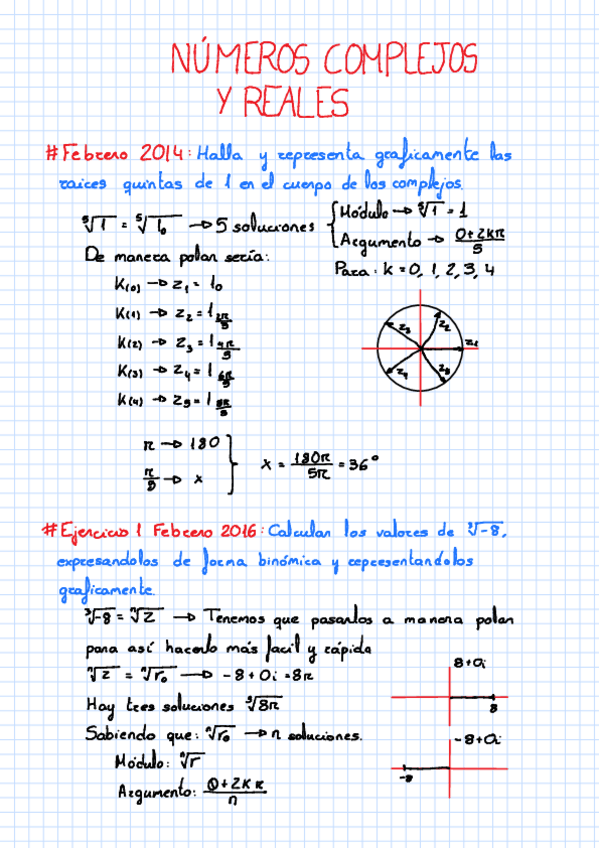 NÚMEROS COMPLEJOS
Y REALES
#Febrero 2014: Halla y representa graficamente las
raices quintas de 1 en el cuerpo de los complejos.
⁵√1 = ⁵√1₀ → 5 soluciones { Módulo → ⁵√1 = 1
Argumento → (0+2kπ)/5
De manera polar sería:
Para: k = 0, 1, 2, 3, 4
K(0) → z₁ = 1₀
K(1) → z₂ = 1 2π/5
K(2) → z₃ = 1 4π/5
K(3) → z₄ = 1 6π/5
K(4) → z₅ = 1 8π/5
z₁
z₂
z₃
z₄
z₅
π → 180
π/5 → x
x = 180π/5π = 36°
#Ejercicio 1 Febrero 2016: Calcular los valores de ³√-8,
expresandolos de forma binómica y representandolos
graficamente.
³√-8 = ⁿ√z → Tenemos que pasarlos a manera polar
para así hacerlo más facil y rápida
ⁿ√z = ⁿ√r₀ → -8+0i = 8π
8+0i
8
Hay tres soluciones ³√8π
Sabiendo que: ⁿ√r₀ → n soluciones.
-8+0i
-8
Módulo: ⁿ√r
Argumento: (0+2kπ)/n